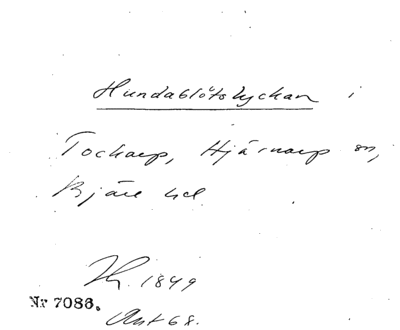 Hundablötslyckan i
Tockarp, Hjärnarp sn,
Bjäre hd
1849
Nr 7086.
Ant 68.